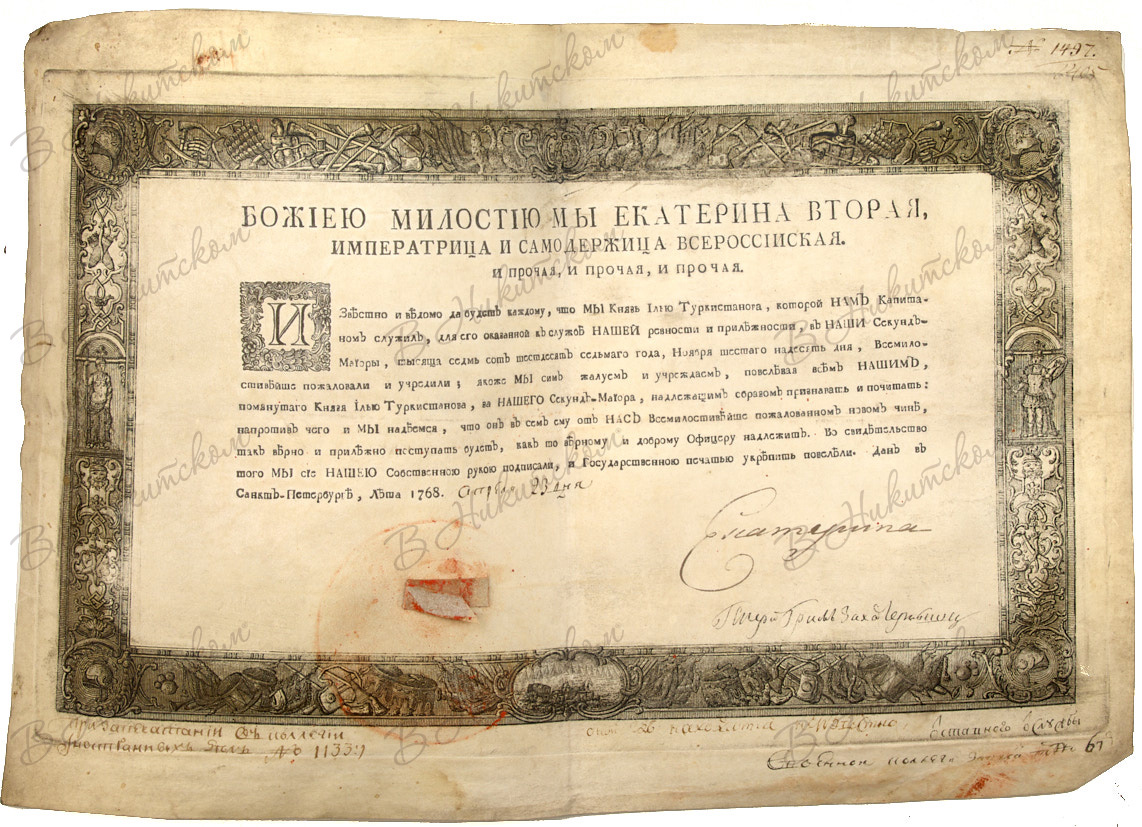 № 1497.
БОЖІЕЮ МИЛОСТІЮ МЫ ЕКАТЕРИНА ВТОРАЯ,
ИМПЕРАТРИЦА И САМОДЕРЖИЦА ВСЕРОССІЙСКАЯ.
И ПРОЧАЯ, И ПРОЧАЯ, И ПРОЧАЯ.
ИЗвѣстно и вѣдомо да будетъ каждому, что МЫ Князь Ілью Туркистанова, которой НАМЪ Капита-
номъ служилъ, для его оказанной къ службѣ НАШЕЙ ревности и прилѣжности, въ НАШИ Секундъ-
Маіоры, тысяща седмь сотъ шестдесятъ седьмаго года, Ноября шестаго надесять дня, Всемило-
стивѣйше пожаловали и учредили; якоже МЫ симъ жалуемъ и учреждаемъ, повелѣвая всѣмъ НАШИМЪ,
помянутаго Князя Ілью Туркистанова, за НАШЕГО Секундъ-Маіора, надлежащимъ образомъ признавать и почитать:
напротивъ чего и МЫ надѣемся, что онъ въ семъ ему отъ НАСЪ Всемилостивѣйше пожалованномъ новомъ чинѣ,
такъ вѣрно и прилѣжно поступать будетъ, какъ то вѣрному и доброму Офицеру надлежитъ. Во свидѣтельство
того МЫ сіе НАШЕЮ Собственною рукою подписали, и Государственною печатью укрѣпить повелѣли. Данъ въ
Санктъ-Петербургѣ, Лѣта 1768. 23 дня
Екатерина
Графъ Заха Чернышевъ
При запечатаніи въ коллегіи
Иностранныхъ делъ № 1133
В Никитском